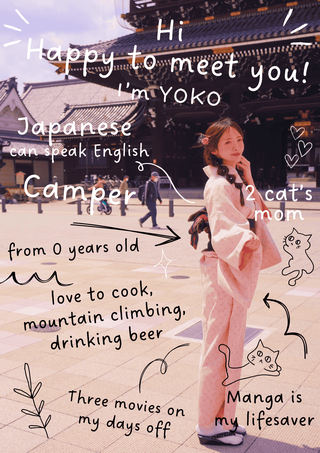 Hi
Happy to meet you!
I'm YOKO
Japanese
can speak English
Camper
2 cat's
mom
from 0 years old
love to cook,
mountain climbing,
drinking beer
Three movies on
my days off
Manga is
my lifesaver